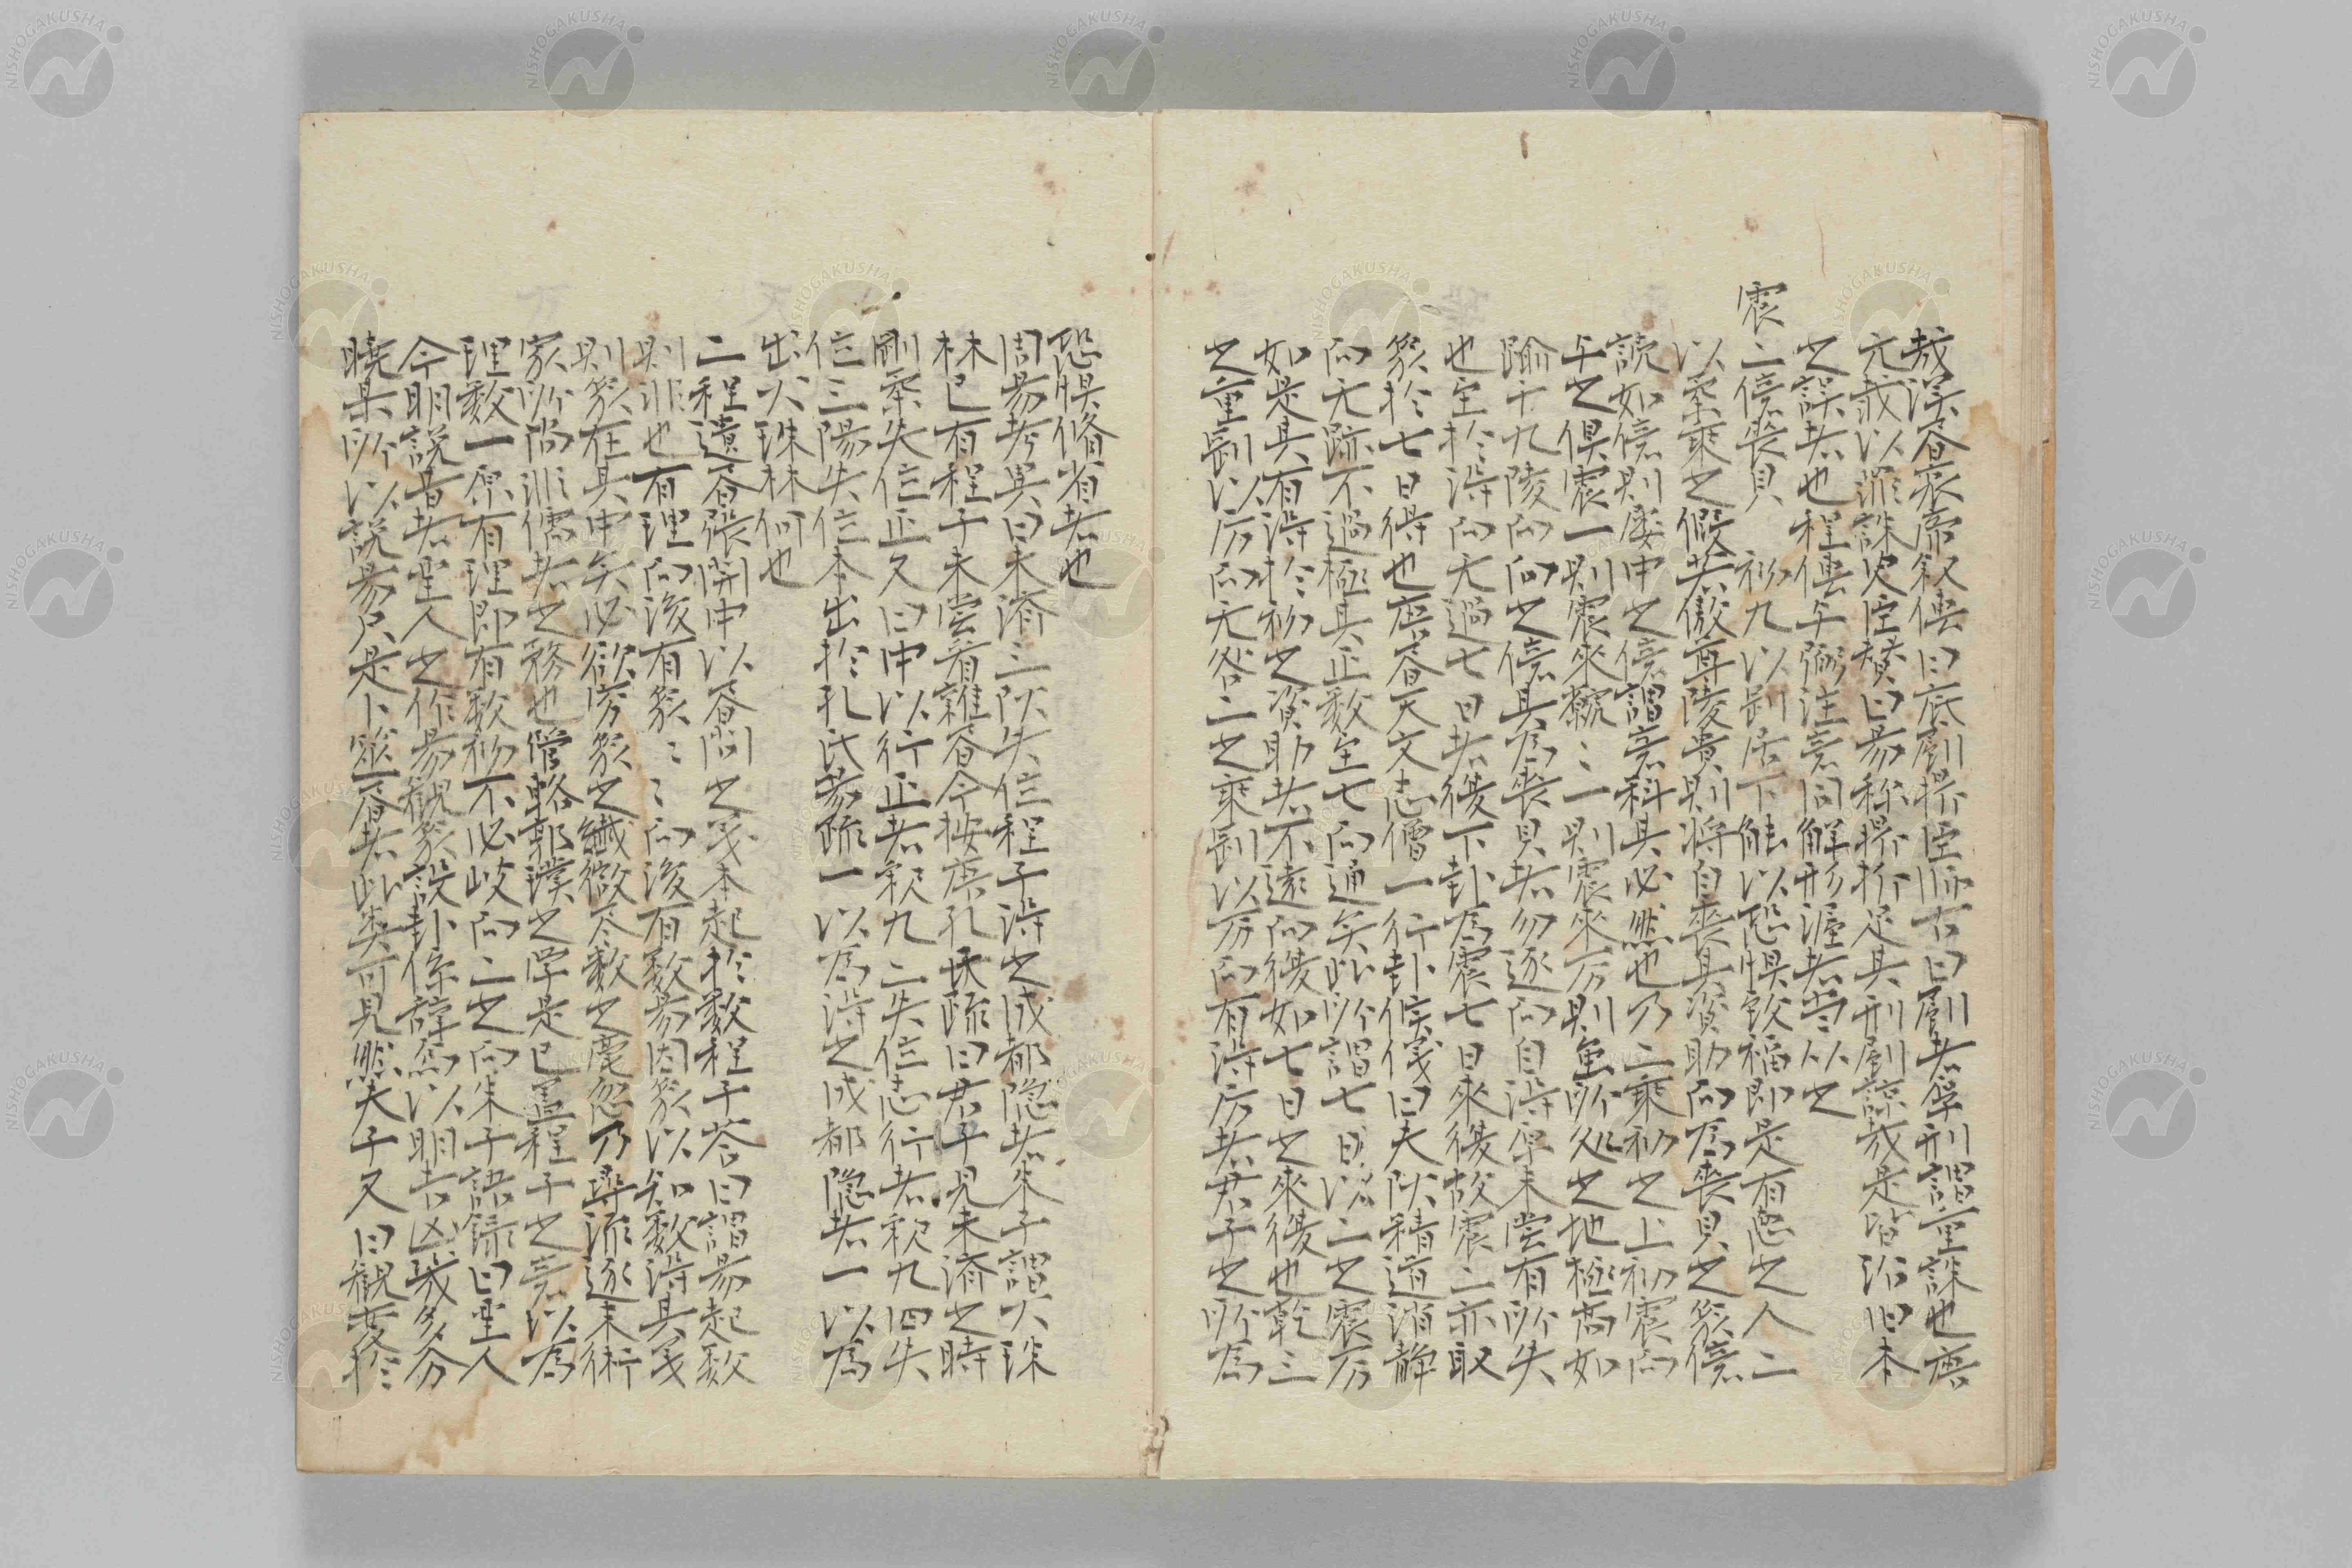 哉漢書哀帝叙傳曰底劇鼎臣師古曰劇者厚刑謂重誅也唐
元載以罪誅史臣賛曰易称鼎折足其刑劇諒哉是皆沿旧本
之誤者也程傳与弼注意同解形渥者当从之
震二億喪貝 初九以剛居下能以恐惧致福即是有徳之人二
以柔乗之假若傲尊陵貴則将自喪其資助而為喪貝之象億
読如億則屡中之億謂意料其必然也乃二乗初之上初震而
与之倶震一則震來虩〻一則震來厉則重所処之地極高如
躋于九陵而向之億其為喪貝者勿逐而自得原未嘗有所失
也至於得而无過七日者復下卦為震七日來復故震二亦取
象於七日得也唐書天文志僧一行卦候議曰夫陽精道消静
而无跡不過極其正数至七而通矣此所謂七日以二之震厉
如是其有得於初之資助者不遠而復如七日之來復也乾三
之重剛以厉而无咎二之乗剛以厉而有得厉者君子之所為
恐惧脩省者也
周易考異曰未済三陽失位程子得之成都隠者朱子謂火珠
林已有程子未嘗看雑書今按唐孔氏疏曰君子見未済之時
剛柔失位正又曰中以行正者釈九二失位志行者釈九四失
位三陽失位本出於孔氏易疏一以為得之成都隠者一以為
出火珠林何也
二程遺書張閎中以書問之義本起於数程子荅曰謂易起数
則非也有理而後有象〻〻而後有数易因象以知数得其義
則象在其中矣必欲窮象之繊微尽数之毫忽乃尋流逐末術
家所尚非儒者之務也管輅郭璞之学是已蓋程子之意以為
理数一原有理即有数初不必岐而二之而朱子語録曰聖人
今明説昔者聖人之作易観象設卦係辞焉以明吉凶幾多分
暁某所以説易只是卜筮書者此類可見然夫子又曰観変於